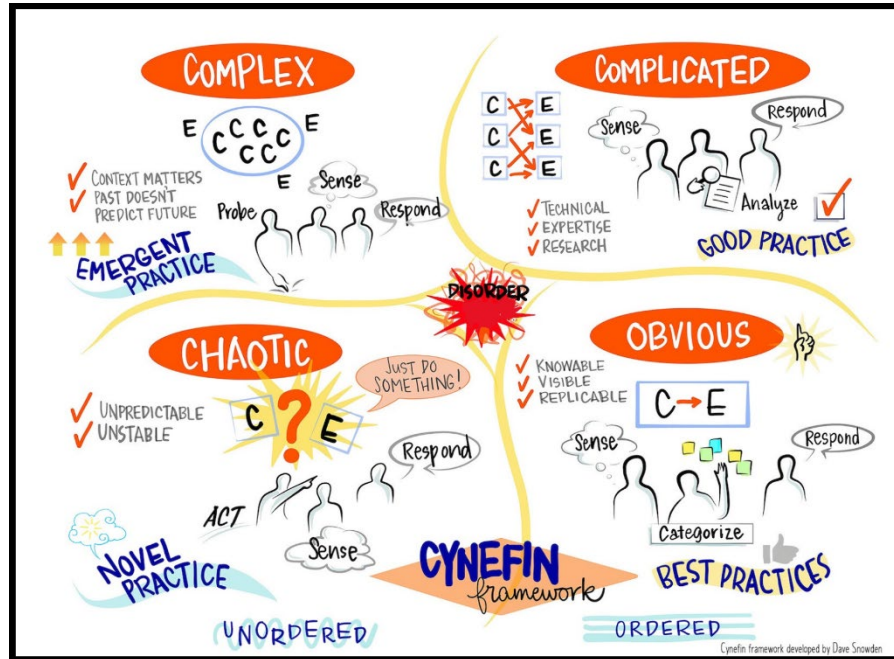 COMPLEX
E
C C C C C C
E
E
CONTEXT MATTERS
PAST DOESN'T
PREDICT FUTURE
Probe
Sense
Respond
EMERGENT
PRACTICE
COMPLICATED
C E
C E
C E
Sense
Respond
Analyze
TECHNICAL
EXPERTISE
RESEARCH
GOOD PRACTICE
DISORDER
CHAOTIC
UNPREDICTABLE
UNSTABLE
C ? E
JUST DO
SOMETHING!
ACT
Sense
Respond
NOVEL
PRACTICE
OBVIOUS
KNOWABLE
VISIBLE
REPLICABLE
C → E
Sense
Respond
Categorize
BEST PRACTICES
CYNEFIN
framework
UNORDERED
ORDERED
Cynefin framework developed by Dave Snowden